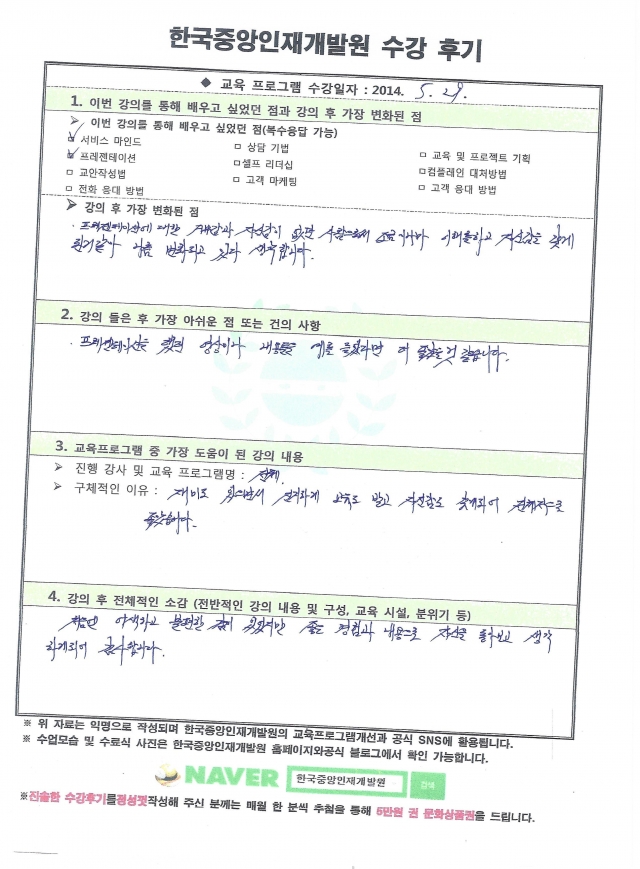 한국중앙인재개발원 수강 후기
◆ 교육 프로그램 수강일자 : 2014. 5. 29.
1. 이번 강의를 통해 배우고 싶었던 점과 강의 후 가장 변화된 점
➢ 이번 강의를 통해 배우고 싶었던 점(복수응답 가능)
☑ 서비스 마인드
□ 상담 기법
□ 교육 및 프로젝트 기획
☑ 프레젠테이션
□셀프 리더십
□컴플레인 대처방법
□ 교안작성법
□ 고객 마케팅
□ 고객 응대 방법
□ 전화 응대 방법
➢ 강의 후 가장 변화된 점
· 프레젠테이션에 대한 자신감이 없던 사람으로써 조금이나마 이해를하고 자신감을 갖게
된거같아 나름 변화되고 있다 생각합니다.
2. 강의 들은 후 가장 아쉬운 점 또는 건의 사항
· 프레젠테이션을 했던 영상이나 내용들을 예를 들었다면 더 좋았을것 같습니다.
3. 교육프로그램 중 가장 도움이 된 강의 내용
➢ 진행 강사 및 교육 프로그램명 : 전체.
➢ 구체적인 이유 : 재미도 있으면서 진지하게 교육도 받고 자신감도 갖게되어 전체적으로
좋았습니다.
4. 강의 후 전체적인 소감 (전반적인 강의 내용 및 구성, 교육 시설, 분위기 등)
처음엔 어색하고 불편한 점이 있었지만 좋은 경험과 내용으로 자신을 돌아보고 생각
하게되어 감사합니다.
※ 위 자료는 익명으로 작성되며 한국중앙인재개발원의 교육프로그램개선과 공식 SNS에 활용됩니다.
※ 수업모습 및 수료식 사진은 한국중앙인재개발원 홈페이지와공식 블로그에서 확인 가능합니다.
NAVER 한국중앙인재개발원 검색
※진솔한 수강후기를정성껏작성해 주신 분께는 매월 한 분씩 추첨을 통해 5만원 권 문화상품권을 드립니다.